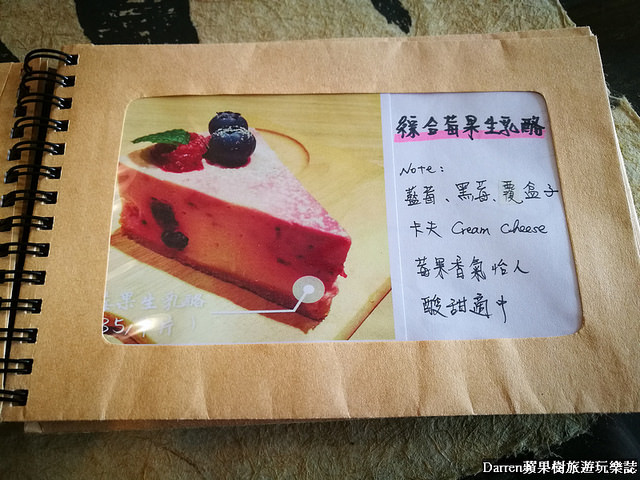 綜合莓果生乳酪
Note:
藍莓、黑莓、覆盆子
卡夫 Cream Cheese
莓果香氣怡人
酸甜適中
果生乳酪
35/1片
Darren蘋果樹旅遊玩樂誌